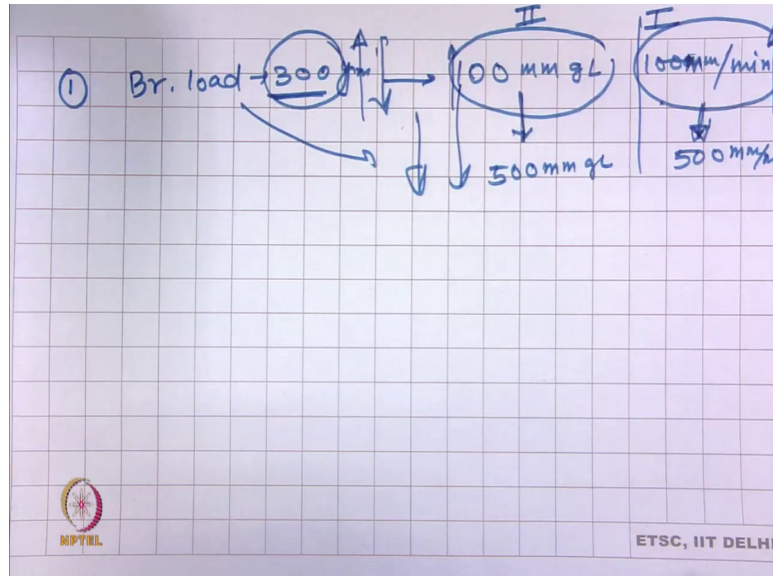 II I
① Br. load → 300 gm → 100 mm gL 100mm/min
500mm gL 500 mm/
NPTEL
ETSC, IIT DELHI